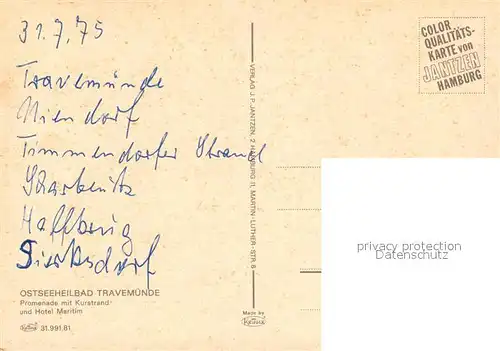 31.7.75
Travemünde
Niendorf
Timmendorfer Strand
Scharbeutz
Haffkrug
Sierksdorf
OSTSEEHEILBAD TRAVEMÜNDE
Promenade mit Kurstrand
und Hotel Maritim
31.991.81
VERLAG J. P. JANTZEN, 2 HAMBURG 11, MARTIN-LUTHER-STR. 8
Made by
KRÜGER
COLOR
QUALITÄTS-
KARTE von
JANTZEN
HAMBURG
privacy protection
datenschutz